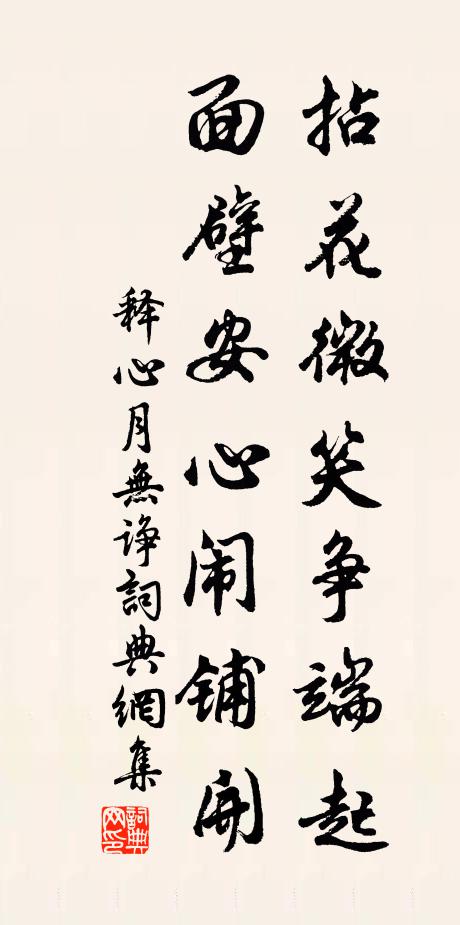 拈花微笑争端起
面壁安心闹铺开
释心月無诤詞典網集
詞典網印